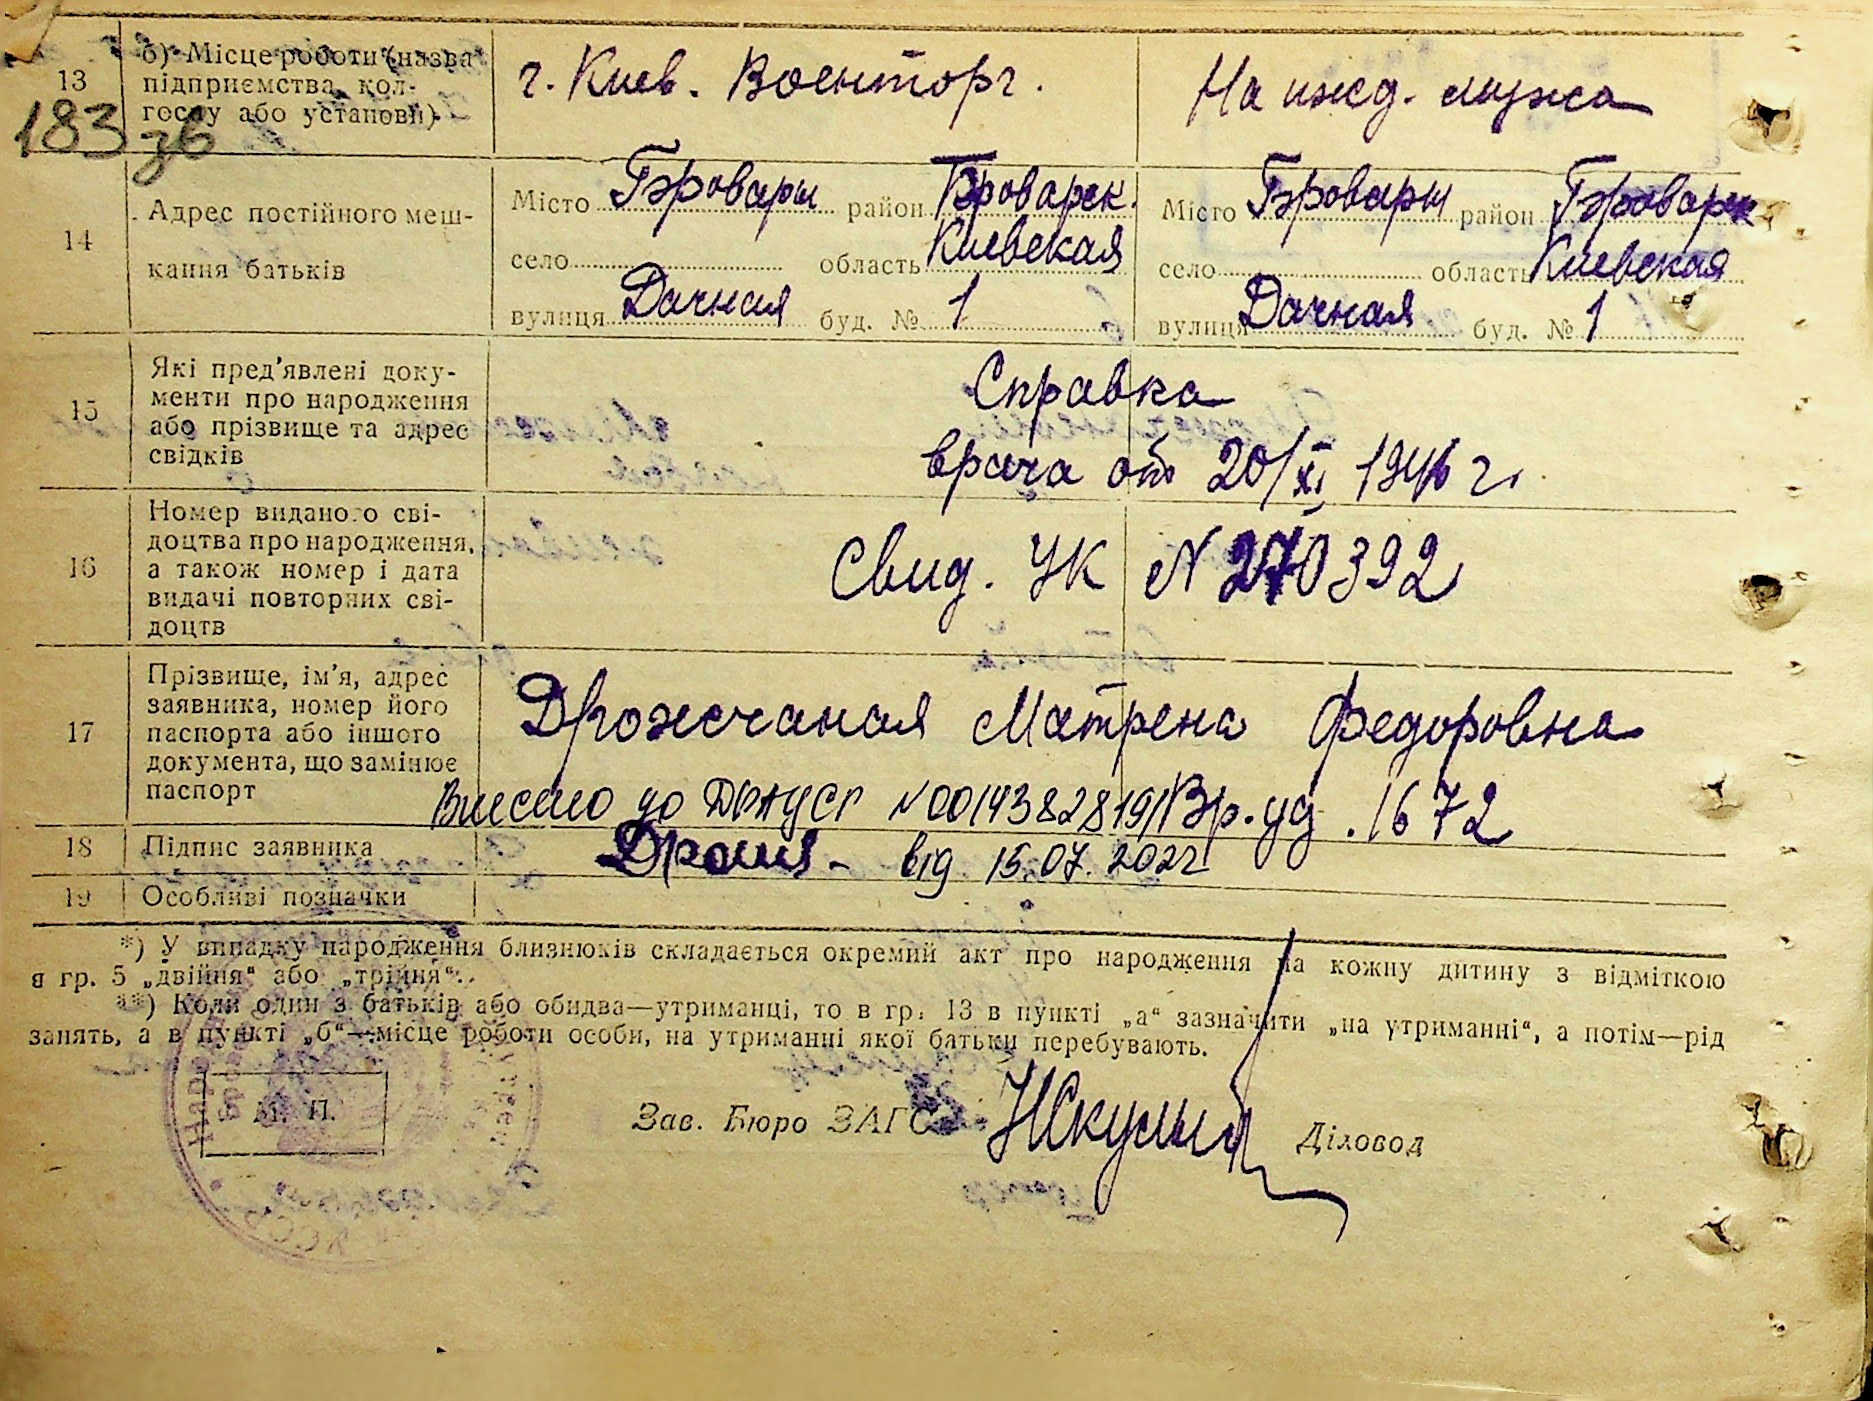 13
б) Місце роботи (назва
підприємства, кол-
госпу або установи)
г. Киев. Военторг.
На ижд. мужа
183 зв
14
Адрес постійного меш-
кання батьків
Місто Бровары район Броварск.
село область Киевская
вулиця Дачная буд. № 1
Місто Бровары район Броварск
село область Киевская
вулиця Дачная буд. № 1
15
Які пред'явлені доку-
менти про народження
або прізвище та адрес
свідків
Справка
врача от 20/XI 1946 г.
16
Номер виданого сві-
доцтва про народження,
а також номер і дата
видачі повторних сві-
доцтв
Свид. УК N 270392
17
Прізвище, ім'я, адрес
заявника, номер його
паспорта або іншого
документа, що замінює
паспорт
Дрожчаная Матрена Федоровна
Внесено до ДРАЦСГ N00143828191 Вр. уд. 1672
18
Підпис заявника
від 15.07.2022
19
Особливі позначки
*) У випадку народження близнюків складається окремий акт про народження на кожну дитину з відміткою
в гр. 5 „двійня“ або „трійня“.
**) Коли один з батьків або обидва—утриманці, то в гр. 13 в пункті „а“ зазначити „на утриманні“, а потім—рід
занять, а в пункті „б“—місце роботи особи, на утриманні якої батьки перебувають.
М. П.
Зав. Бюро ЗАГС
Діловод